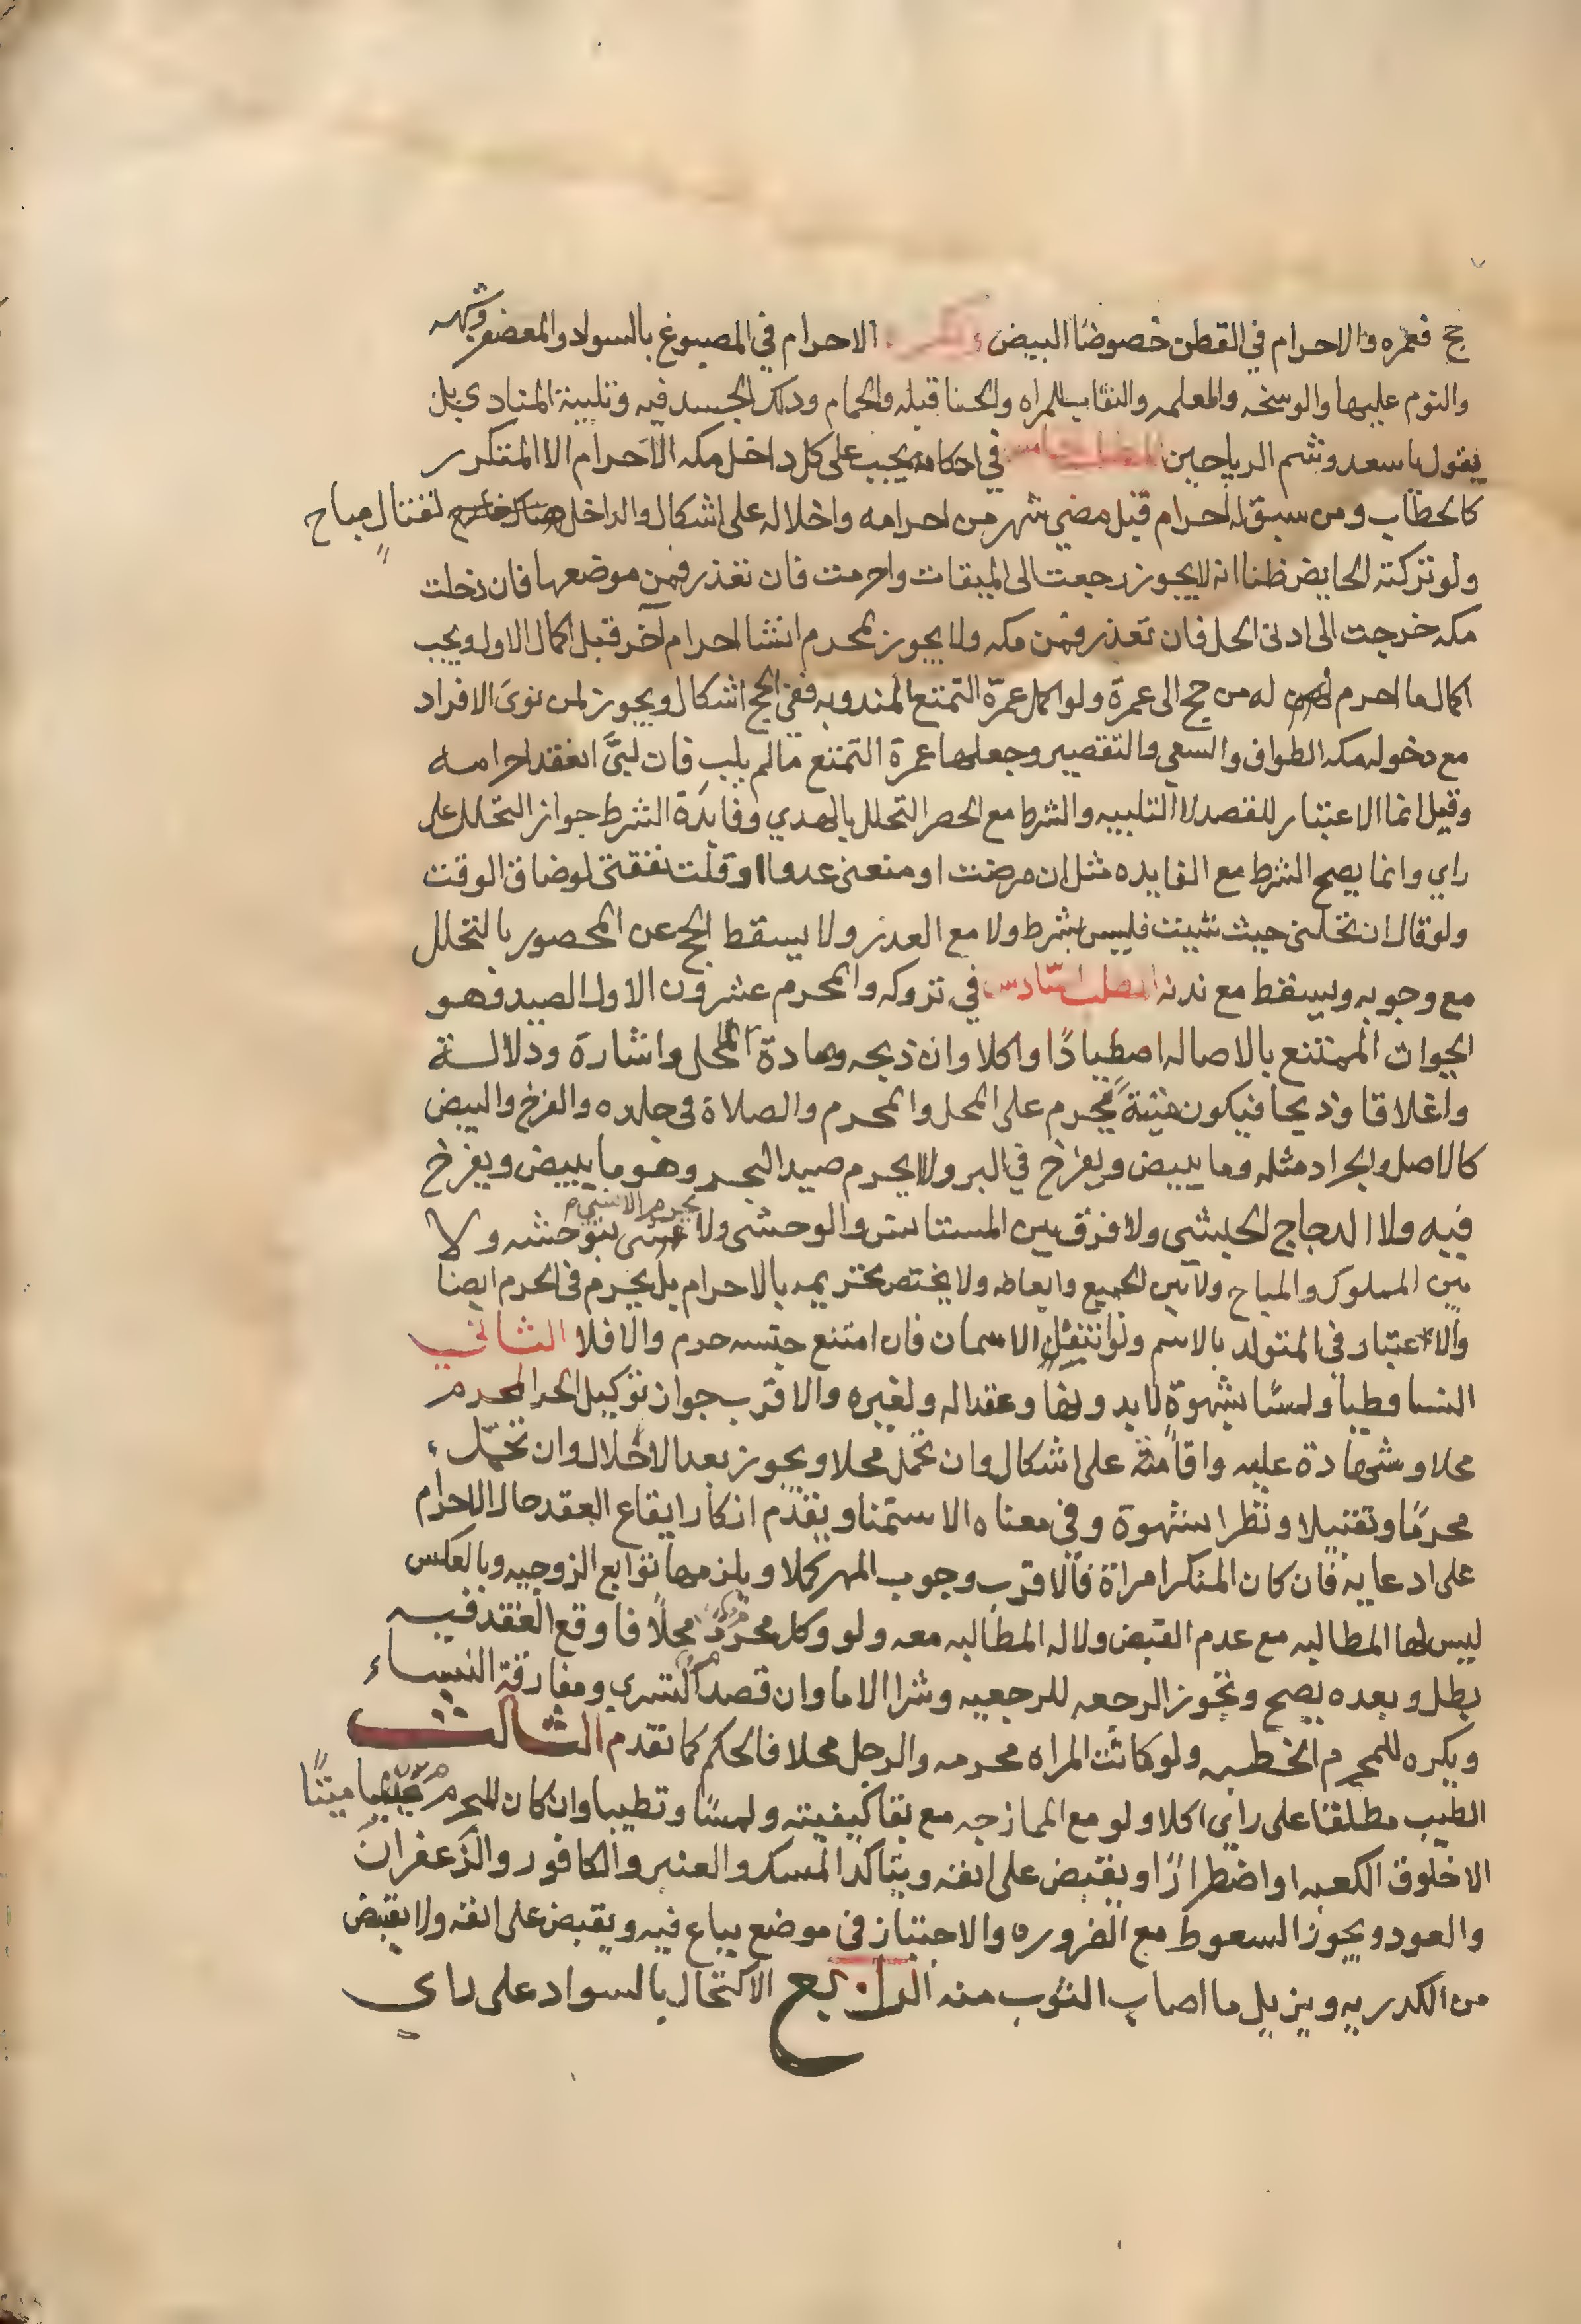 حج فعمره والاحرام في القطن خصوصًا البيض ويكره الاحرام في المصبوغ بالسواد والمعصفر وشبهه
والنوم عليها والوسخه والمعلمه والنقاب للمراه والحنا قبله والحمام ودلك الجسد فيه وتلبية المنادي بل
يقول يا سعد وشم الرياحين المطلب الخامس في احكامه يجب على كل داخل مكه الاحرام الا المتكرر
كالحطاب ومن سبق له احرام قبل مضي شهر من احرامه واخلاله على اشكال والداخل لقتال مباح
ولو تركته الحايض ظنا انه لا يجوز رجعت الى الميقات واحرمت فان تعذر فمن موضعها فان دخلت
مكه خرجت الى ادنى الحل فان تعذر فمن مكه ولا يجوز لمحرم انشا احرام آخر قبل اكمال الاول ويجب
اكمال ما احرم له من حج الى عمرة ولو اكمل عمرة التمتع المندوبه ففي الحج اشكال ويجوز لمن نوى الافراد
مع دخوله مكه الطواف والسعي والتقصير وجعلها عمرة التمتع مالم يلب فان لبىَّ انعقد احرامه
وقيل انما الاعتبار للقصد لا التلبيه والشرط مع الحصر التحلل بالهدي وفايدة الشرط جواز التحلل على
راي وانما يصح الشرط مع الفايده مثل ان مرضت او منعنى عدو او قلت نفقتى او ضاق الوقت
ولو قال ان تحلنى حيث شيت فليس بشرط ولا مع العدز ولا يسقط الحج عن المحصور بالتحلل
مع وجوبه ويسقط مع ندبه المطلب السّادس في تروكه والمحرم عشرون الاول الصيد فهو
الحيوان الممتنع بالاصاله اصطيادًا واكلا وان ذبحه وصاده المحل واشارة ودلالة
واغلاقا وذبحا فيكون ميتةً يحرم على المحل والمحرم والصلاة في جلده والفرخ والبيض
كالاصل والجراد مثله وما يبيض ويفرخ في البر ولا يحرم صيد البحر وهو ما يبيض ويفرخ
فيه ولا الدجاج الحبشى ولا فرق بين المستانس والوحشى ولا يحرم الانسي بتوحشه ولا
بين المملوك والمباح ولا بين الجميع وابعاضه ولا يختص تحريمه بالاحرام بل يحرم في الحرم ايضا
والاعتبار في المتولد بالاسم ولو انتفى الاسمان فان امتنع جنسه حرم والا فلا الثاني
النسا وطيا ولمسًا بشهوةٍ لا بدونها وعقدا له ولغيره والاقرب جواز توكيل الحد المحرم
محلا وشهادة عليه واقامة على اشكال وان تحمل محلا ويجوز بعد الاخلال وان تحمّل
محرمًا وتقبيلا ونظرا بشهوة وفي معناه الاستمنا ويقدم انكار ايقاع العقد حال الاحرام
على ادعايه فان كان المنكر امراة فالاقرب وجوب المهر كملا ويلزمها توابع الزوجيه وبالعكس
ليس لها المطالبه مع عدم القبض ولا له المطالبه معه ولو وكل محرمٌ محلًا فاوقع العقد فيه
بطل وبعده يصح وتجوز الرجعه للرجعيه وشرا الاما وان قصد التسري ومفارقة النساء
ويكره للمحرم الخطبه ولو كانت المراه محرمه والرجل محلا فالحكم كما تقدم الثالث
الطيب مطلقا على راي اكلا ولو مع الممازجه مع بقا كيفيته ولمسًا وتطيبا وان كان المحرم ميتًا
الا خلوق الكعبه او اضطرارًا ويقبض على انفه ويتاكد المسك والعنبر والكافور والزعفران
والعود ويجوز السعوط مع الضروره والاجتياز في موضع يباع فيه ويقبض على انفه ولا يقبض
من الكدريه ويزيل ما اصاب الثوب منه الرابع الاكتحال بالسواد على راي